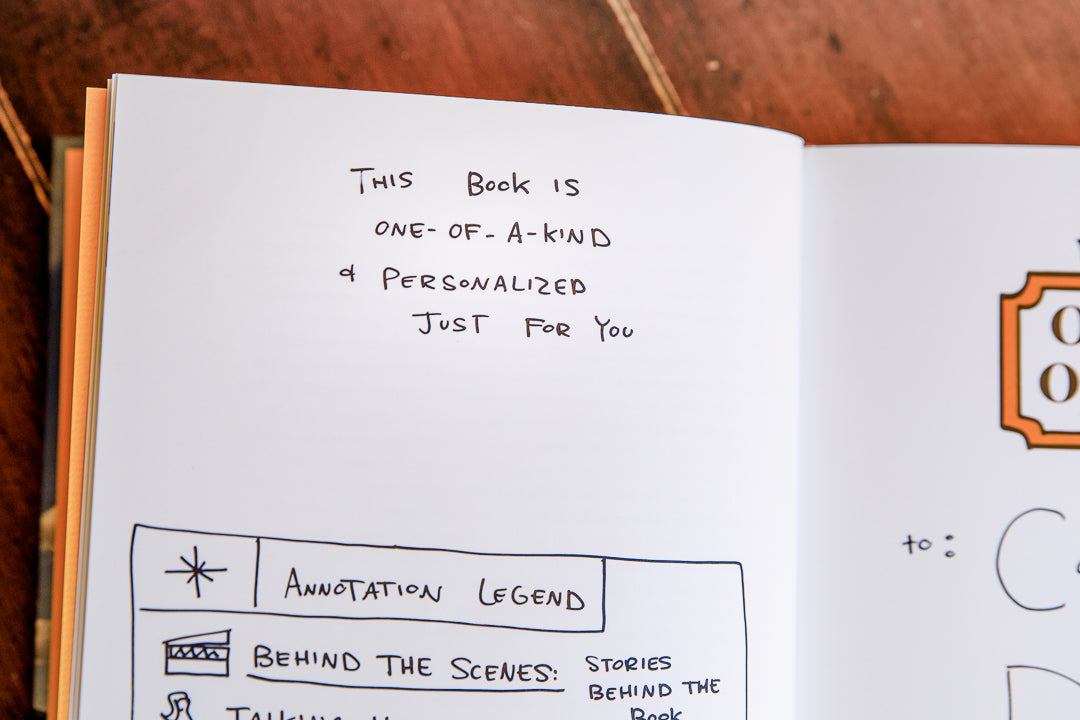 THIS BOOK IS
ONE-OF-A-KIND
& PERSONALIZED
JUST FOR YOU
ANNOTATION LEGEND
BEHIND THE SCENES: STORIES
BEHIND THE
BOOK
TALKING
to: